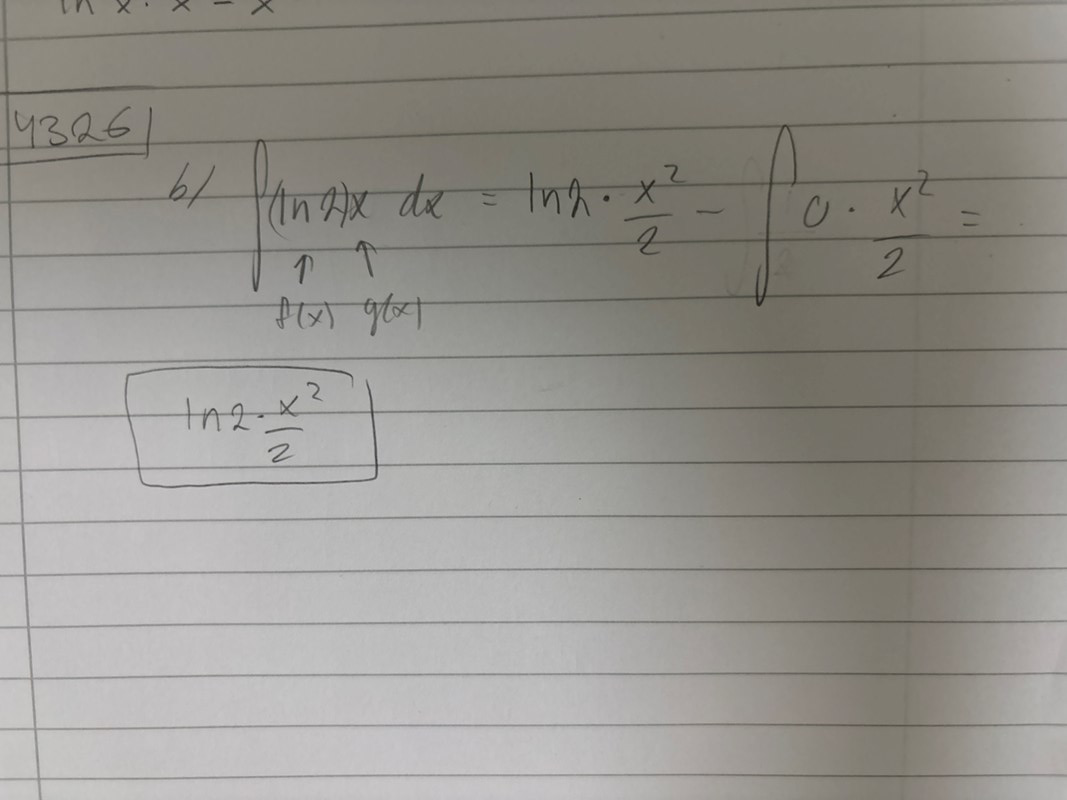 ln x · x - x
4326
b) ∫(ln 2)x dx = ln2 · x²/2 - ∫ 0 · x²/2 =
↑ ↑
f(x) g(x)
ln2 · x²/2